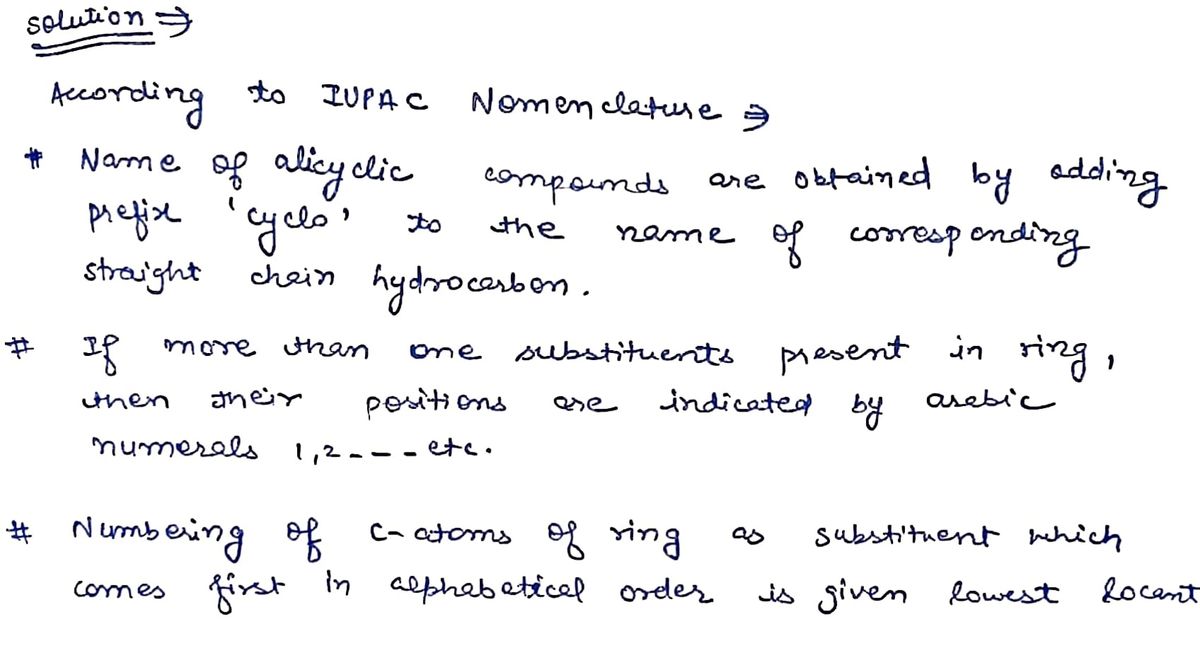 solution ⇒
According to IUPAC Nomenclature ⇒
# Name of alicyclic compounds are obtained by adding
prefix 'cyclo' to the name of corresponding
straight chain hydrocarbon.
# If more than one substituents present in ring,
then their positions are indicated by arabic
numerals 1,2---- etc.
# Numbering of C-atoms of ring as substituent which
comes first in alphabetical order is given lowest locant